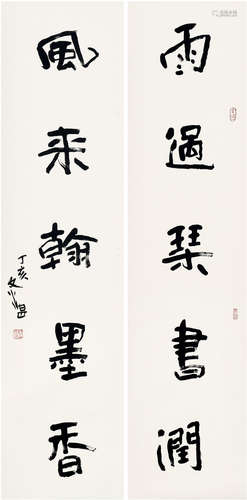 雨過琴書潤
風来翰墨香
丁亥